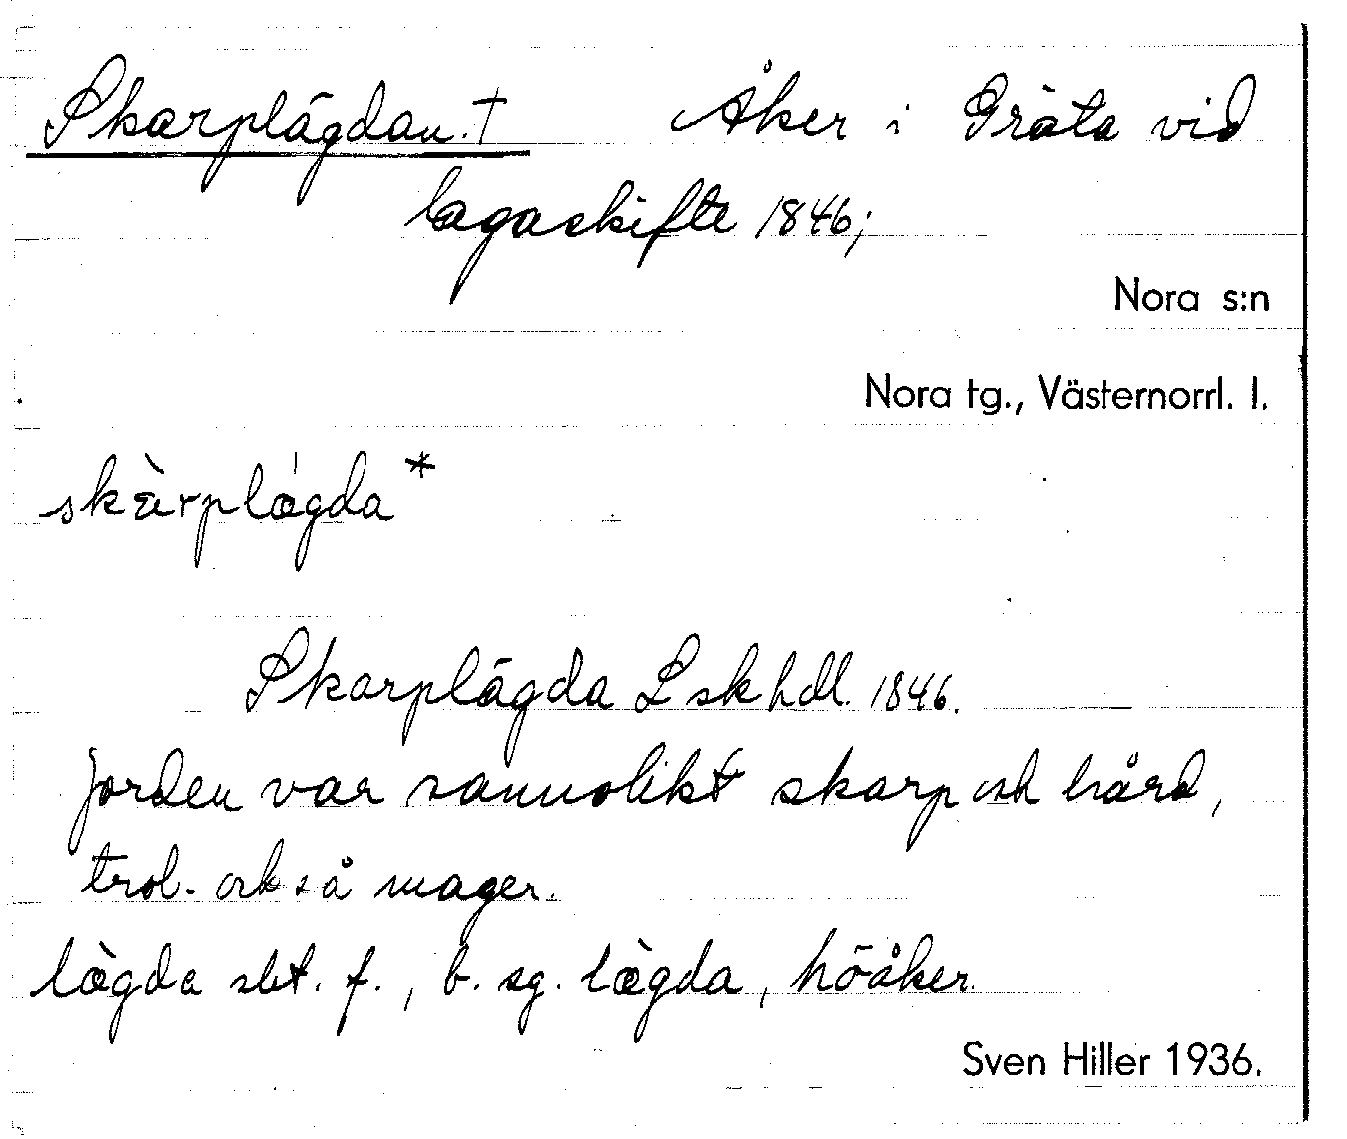 Skarplägdan. † Åker i Gräta vid
lagaskifte 1846;
Nora s:n
Nora tg., Västernorrl. l.
skàrplǽgda*
Skarplägda L skhdl. 1846.
Jorden var sannolikt skarp och hård,
trol. också mager.
lægda sbt. f., b. sg. lægda, höåker.
Sven Hiller 1936.